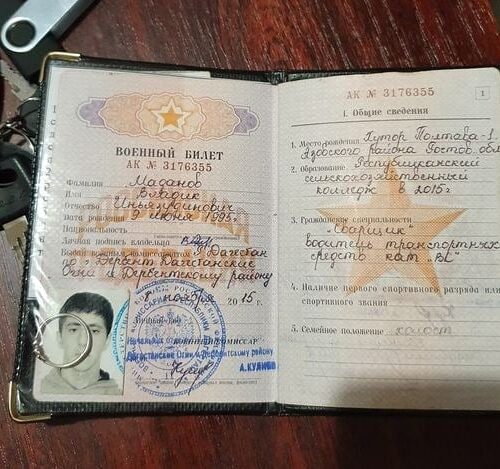 ВОЕННЫЙ БИЛЕТ
АК № 3176355
Фамилия Маданов
Имя Владик
Отчество
Дата рождения 9 июня 1995г.
Национальность
Личная подпись владельца
Выдан военным комиссариатом Дагестан
по г. Дербент, Дагестанские
Огни и Дербентскому району
ноября 2015 г.
Начальник военный комиссар
Дагестанские Огни и Дербентскому району
А.КУЛИЕВ
АК № 3176355
1
I. Общие сведения
1. Место рождения Хутор Полтава-1
Азовского района Ростов. обл.
2. Образование Республиканский
сельскохозяйственный
колледж в 2015г
3. Гражданские специальности
"Сварщик"
водитель транспортных
средств кат "ВС"
4. Наличие первого спортивного разряда или
спортивного звания
5. Семейное положение холост